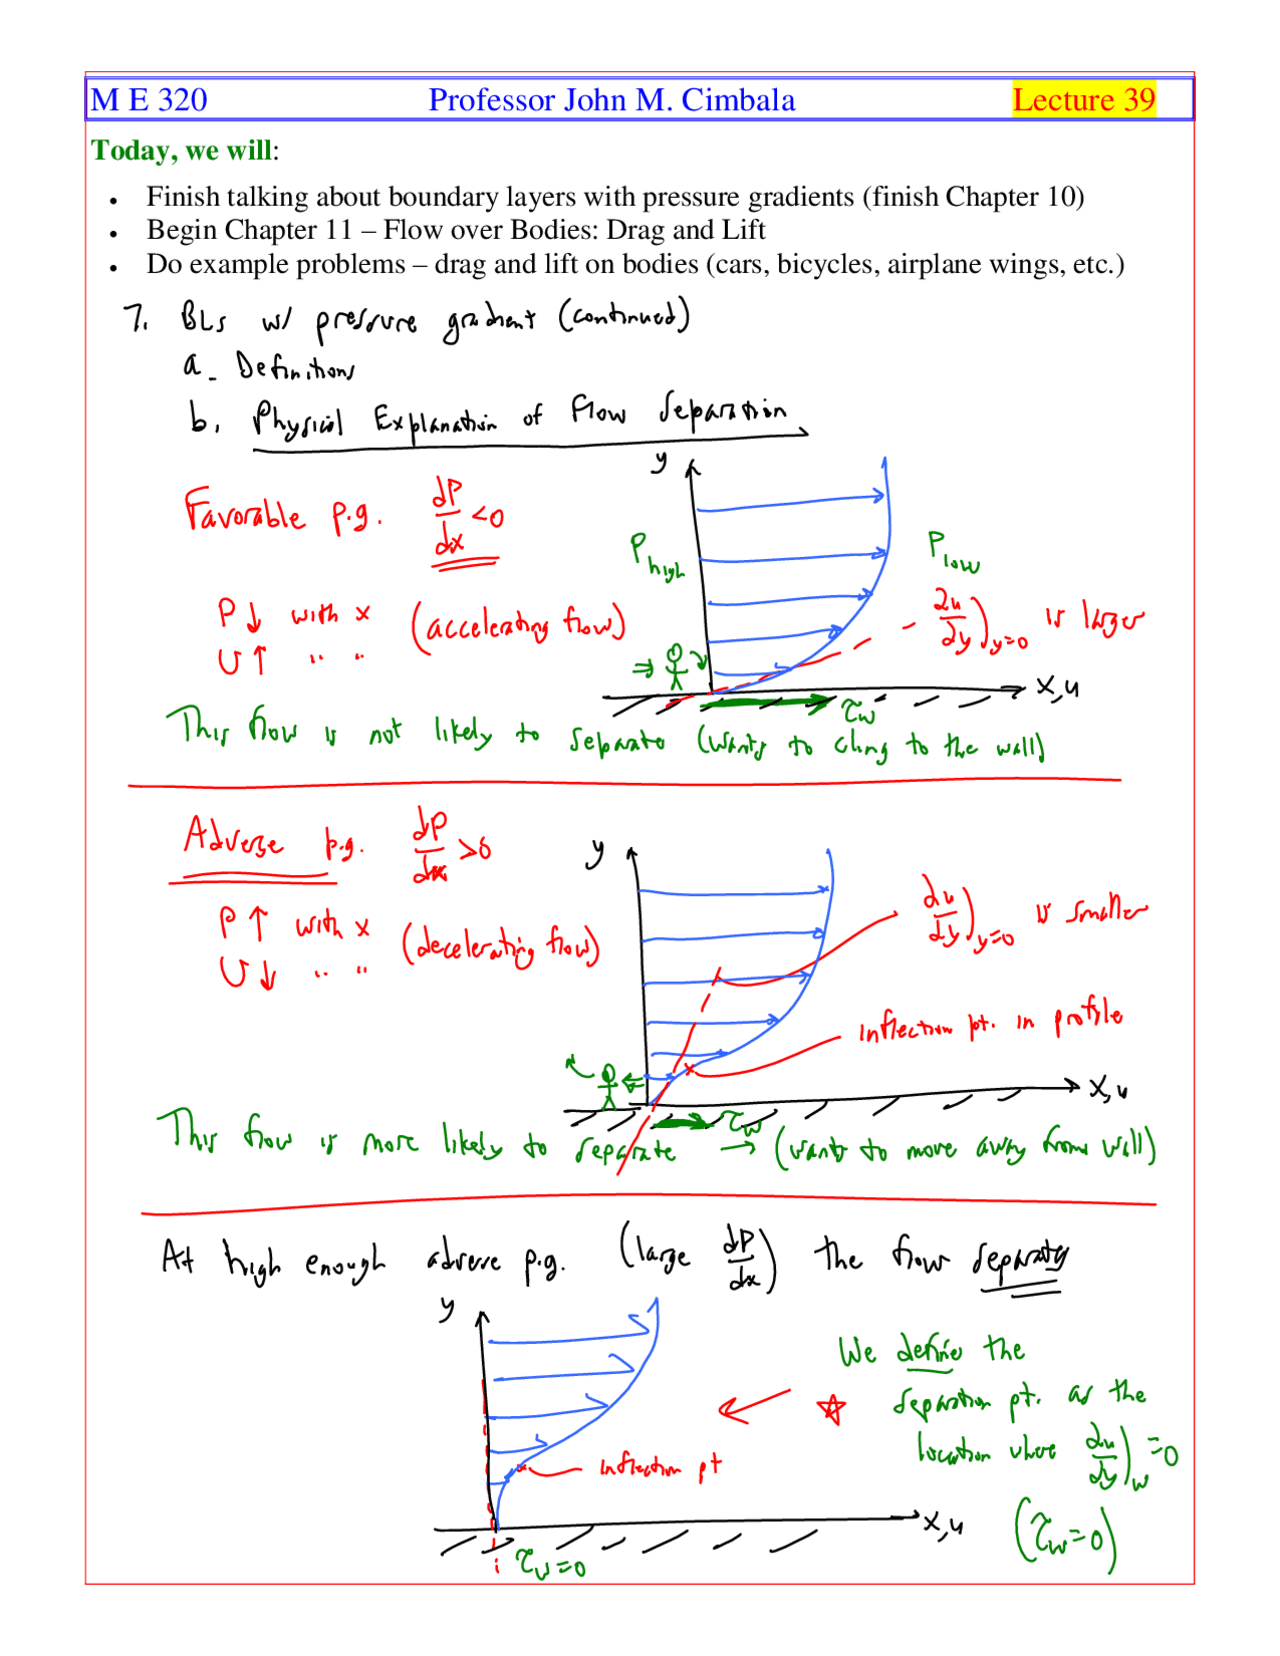 M E 320 Professor John M. Cimbala Lecture 39
Today, we will:
• Finish talking about boundary layers with pressure gradients (finish Chapter 10)
• Begin Chapter 11 – Flow over Bodies: Drag and Lift
• Do example problems – drag and lift on bodies (cars, bicycles, airplane wings, etc.)
7. BLs w/ pressure gradient (continued)
a. Definitions
b. Physical Explanation of Flow Separation
y
Favorable p.g. dP/dx <0
P high
P low
P↓ with x (accelerating flow)
U↑ " "
∂u/∂y)y=0 is larger
x,u
τw
This flow is not likely to separate (wants to cling to the wall)
Adverse p.g. dP/dx >0
y
P↑ with x (decelerating flow)
U↓ " "
∂u/∂y)y=0 is smaller
inflection pt. in profile
x,u
τw
This flow is more likely to separate → (wants to move away from wall)
At high enough adverse p.g. (large dP/dx) the flow separates
y
We define the
separation pt. as the
location where ∂u/∂y)w =0
inflection pt
x,u
(τw=0)
τw=0